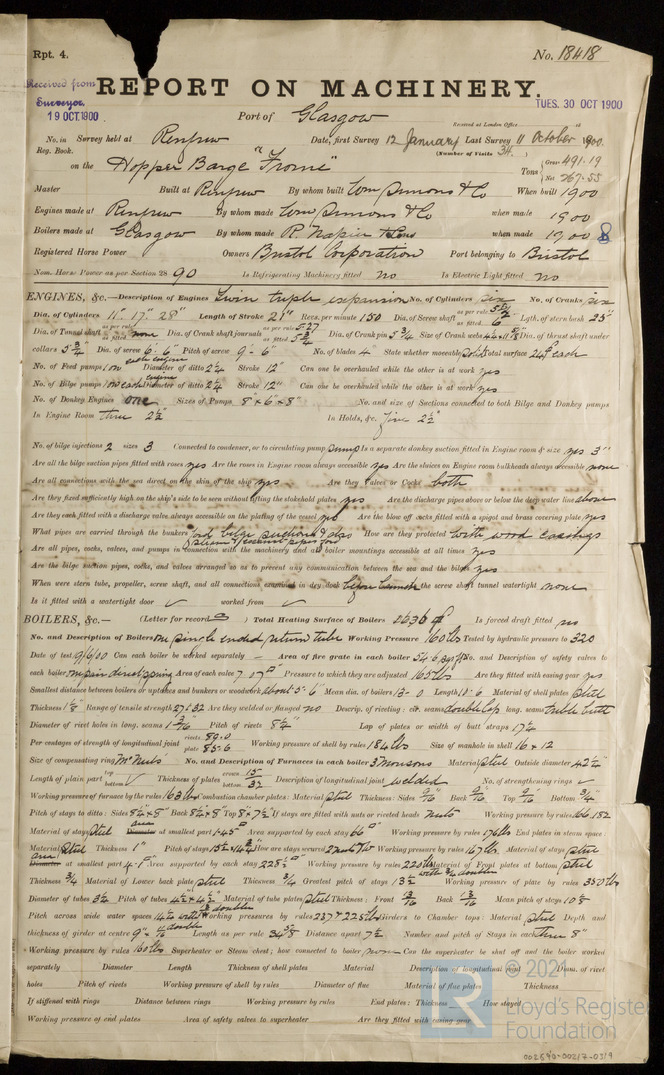 Rpt. 4.
No. 18418
Received from Surveyor.
19 OCT. 1900
REPORT ON MACHINERY.
TUES. 30 OCT 1900
Port of Glasgow
Received at London Office
No. in Survey held at Renfrew Date, first Survey 12 January Last Survey 11 October 1900
Reg. Book. (Number of Visits 34)
on the Hopper Barge "Frome" Tons Gross 491.19 Net 267.55
Master Built at Renfrew By whom built Wm Simons & Co When built 1900
Engines made at Renfrew By whom made Wm Simons & Co when made 1900
Boilers made at Glasgow By whom made R. Napier & Sons when made 1900
Registered Horse Power Owners Bristol Corporation Port belonging to Bristol
Nom. Horse Power as per Section 28 90 Is Refrigerating Machinery fitted no Is Electric Light fitted no
ENGINES, &c.—Description of Engines Twin triple expansion No. of Cylinders six No. of Cranks six
Dia. of Cylinders 11" 17" 28" Length of Stroke 21" Revs. per minute 150 Dia. of Screw shaft as per rule as fitted 6 Lgth. of stern bush 25"
Dia. of Tunnel shaft as per rule as fitted none Dia. of Crank shaft journals as per rule 5.27 as fitted 5 3/4 Dia. of Crank pin 5 3/4 Size of Crank webs Dia. of thrust shaft under
collars 5 3/4" Dia. of screw 6'. 6" Pitch of screw 9'. 6" No. of blades 4 State whether moveable solid Total surface 24 ft each
No. of Feed pumps 1 on each engine Diameter of ditto 2 1/4 Stroke 12" Can one be overhauled while the other is at work yes
No. of Bilge pumps 1 on each engine Diameter of ditto 2 1/4 Stroke 12" Can one be overhauled while the other is at work yes
No. of Donkey Engines one Sizes of Pumps 8" x 6" x 8" No. and size of Suctions connected to both Bilge and Donkey pumps
In Engine Room three 2 1/2 In Holds, &c. five 2 1/2"
No. of bilge injections 2 sizes 3 Connected to condenser, or to circulating pump pump Is a separate donkey suction fitted in Engine room & size yes 3"
Are all the bilge suction pipes fitted with roses yes Are the roses in Engine room always accessible yes Are the sluices on Engine room bulkheads always accessible none
Are all connections with the sea direct on the skin of the ship yes Are they Valves or Cocks both
Are they fixed sufficiently high on the ship's side to be seen without lifting the stokehold plates yes Are the discharge pipes above or below the deep water line above
Are they each fitted with a discharge valve always accessible on the plating of the vessel yes Are the blow off cocks fitted with a spigot and brass covering plate yes
What pipes are carried through the bunkers bilge suctions & also How are they protected with wood casings
Are all pipes, cocks, valves, and pumps in connection with the machinery and all boiler mountings accessible at all times yes
Are the bilge suction pipes, cocks, and valves arranged so as to prevent any communication between the sea and the bilges yes
When were stern tube, propeller, screw shaft, and all connections examined in dry dock before launch Is the screw shaft tunnel watertight none
Is it fitted with a watertight door ✓ worked from ✓
BOILERS, &c.— (Letter for record ) Total Heating Surface of Boilers 2636 Is forced draft fitted no
No. and Description of Boilers one single ended return tube Working Pressure 160 lbs Tested by hydraulic pressure to 320
Date of test 9/6/00 Can each boiler be worked separately — Area of fire grate in each boiler 54.6 sq ft No. and Description of safety valves to
each boiler one pair direct spring Area of each valve 7.07 Pressure to which they are adjusted 165 lbs Are they fitted with easing gear yes
Smallest distance between boilers or uptakes and bunkers or woodwork about 5'. 6" Mean dia. of boilers 13-0 Length 10.6 Material of shell plates steel
Thickness 1 1/8 Range of tensile strength 27 & 32 Are they welded or flanged no Descrip. of riveting: cir. seams double lap long. seams treble butt
Diameter of rivet holes in long. seams 1 3/16" Pitch of rivets 8 1/4" Lap of plates or width of butt straps 17 1/4
Per centages of strength of longitudinal joint rivets 89.0 plate 85.6 Working pressure of shell by rules 184 lbs Size of manhole in shell 16 x 12
Size of compensating ring McNeils No. and Description of Furnaces in each boiler 3 Morisons Material steel Outside diameter 42 1/4"
Length of plain part top bottom ✓ Thickness of plates crown bottom Description of longitudinal joint welded No. of strengthening rings ✓
Working pressure of furnace by the rules 163 lbs Combustion chamber plates: Material steel Thickness: Sides 9/16" Back 9/16" Top 9/16" Bottom 3/4"
Pitch of stays to ditto: Sides 8 1/4 x 8" Back 8 1/4 x 8" Top 8" x 7 1/2" If stays are fitted with nuts or riveted heads nuts Working pressure by rules 182
Material of stays steel Diameter area at smallest part 1.45 Area supported by each stay 66 Working pressure by rules 176 lbs End plates in steam space:
Material steel Thickness 1" Pitch of stays How are stays secured 2 nuts & w Working pressure by rules 167 lbs Material of stays steel
Diameter area at smallest part 4.1 Area supported by each stay 228 1/2 Working pressure by rules 225 lbs Material of Front plates at bottom steel
Thickness 3/4 Material of Lower back plate steel Thickness 3/4 Greatest pitch of stays 13 1/2 with 3/4 doubler Working pressure of plate by rules 350 lbs
Diameter of tubes 3 1/4 Pitch of tubes 4 1/2" x 4 1/2" Material of tube plates steel Thickness: Front Back Mean pitch of stays 10 1/8
Pitch across wide water spaces 14 1/2 with doublers Working pressures by rules 237 & 225 lbs Girders to Chamber tops: Material steel Depth and
thickness of girder at centre double Length as per rule Distance apart 7 1/2 Number and pitch of Stays in each three 8"
Working pressure by rules 160 lbs Superheater or Steam chest; how connected to boiler none Can the superheater be shut off and the boiler worked
separately Diameter Length Thickness of shell plates Material Description of longitudinal joint Diam. of rivet
holes Pitch of rivets Working pressure of shell by rules Diameter of flue Material of flue plates Thickness
If stiffened with rings Distance between rings Working pressure by rules End plates: Thickness How stayed
Working pressure of end plates Area of safety valves to superheater Are they fitted with easing gear
© 2021
Lloyd's Register
Foundation
002590-00217-0319